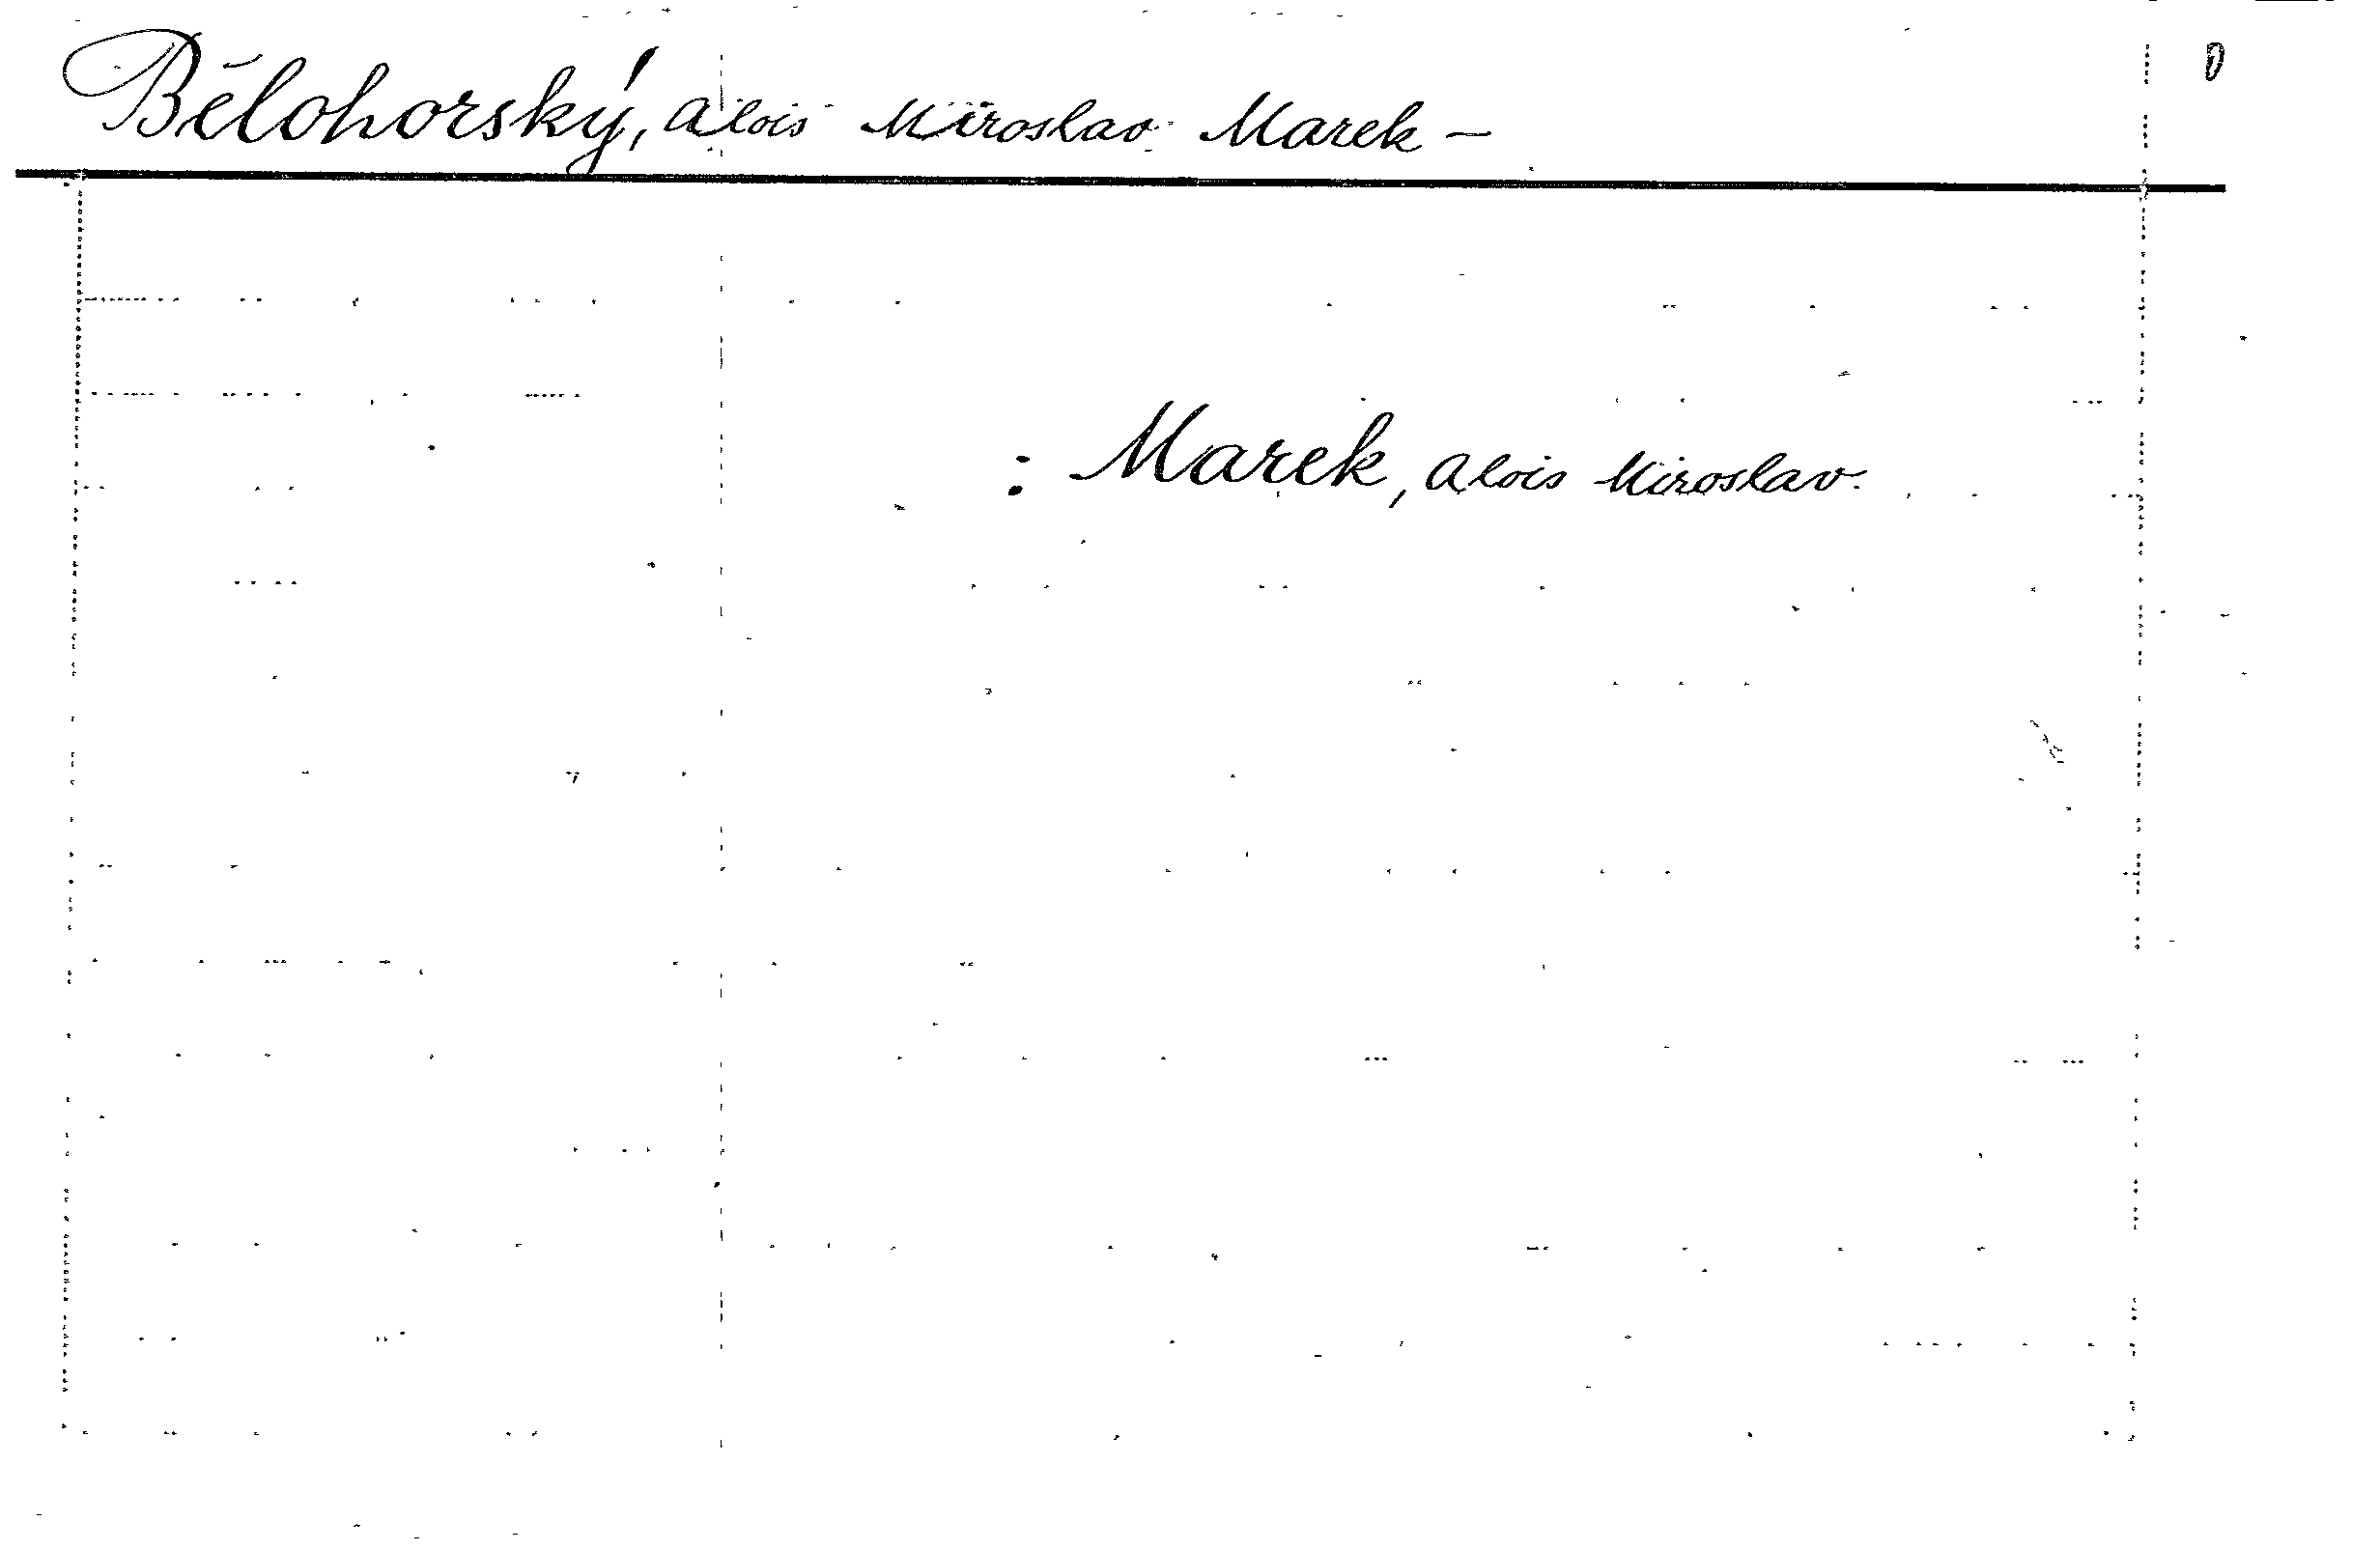 Bělohorský, Alois Miroslav Marek –
: Marek, Alois Miroslav.